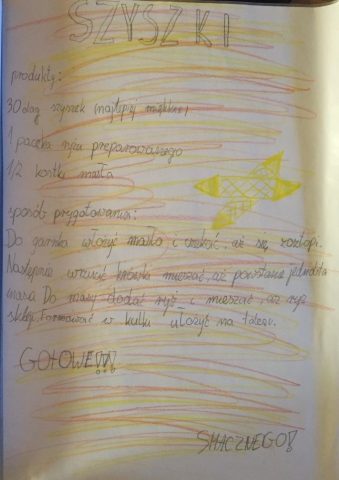 SZYSZKI
produkty:
30 dag szyszek (najlepiej miękkie)
1 paczka ryżu preparowanego
1/2 kostki masła
sposób przygotowania:
Do garnka włożyć masło i czekać, aż się roztopi.
Następnie wrzucić mieszać, aż powstanie jednolita
masa. Do masy dodać ryż i mieszać, aż się
sklei. Formować w kulki ułożyć na talerzu.
GOTOWE!!!
SMACZNEGO!